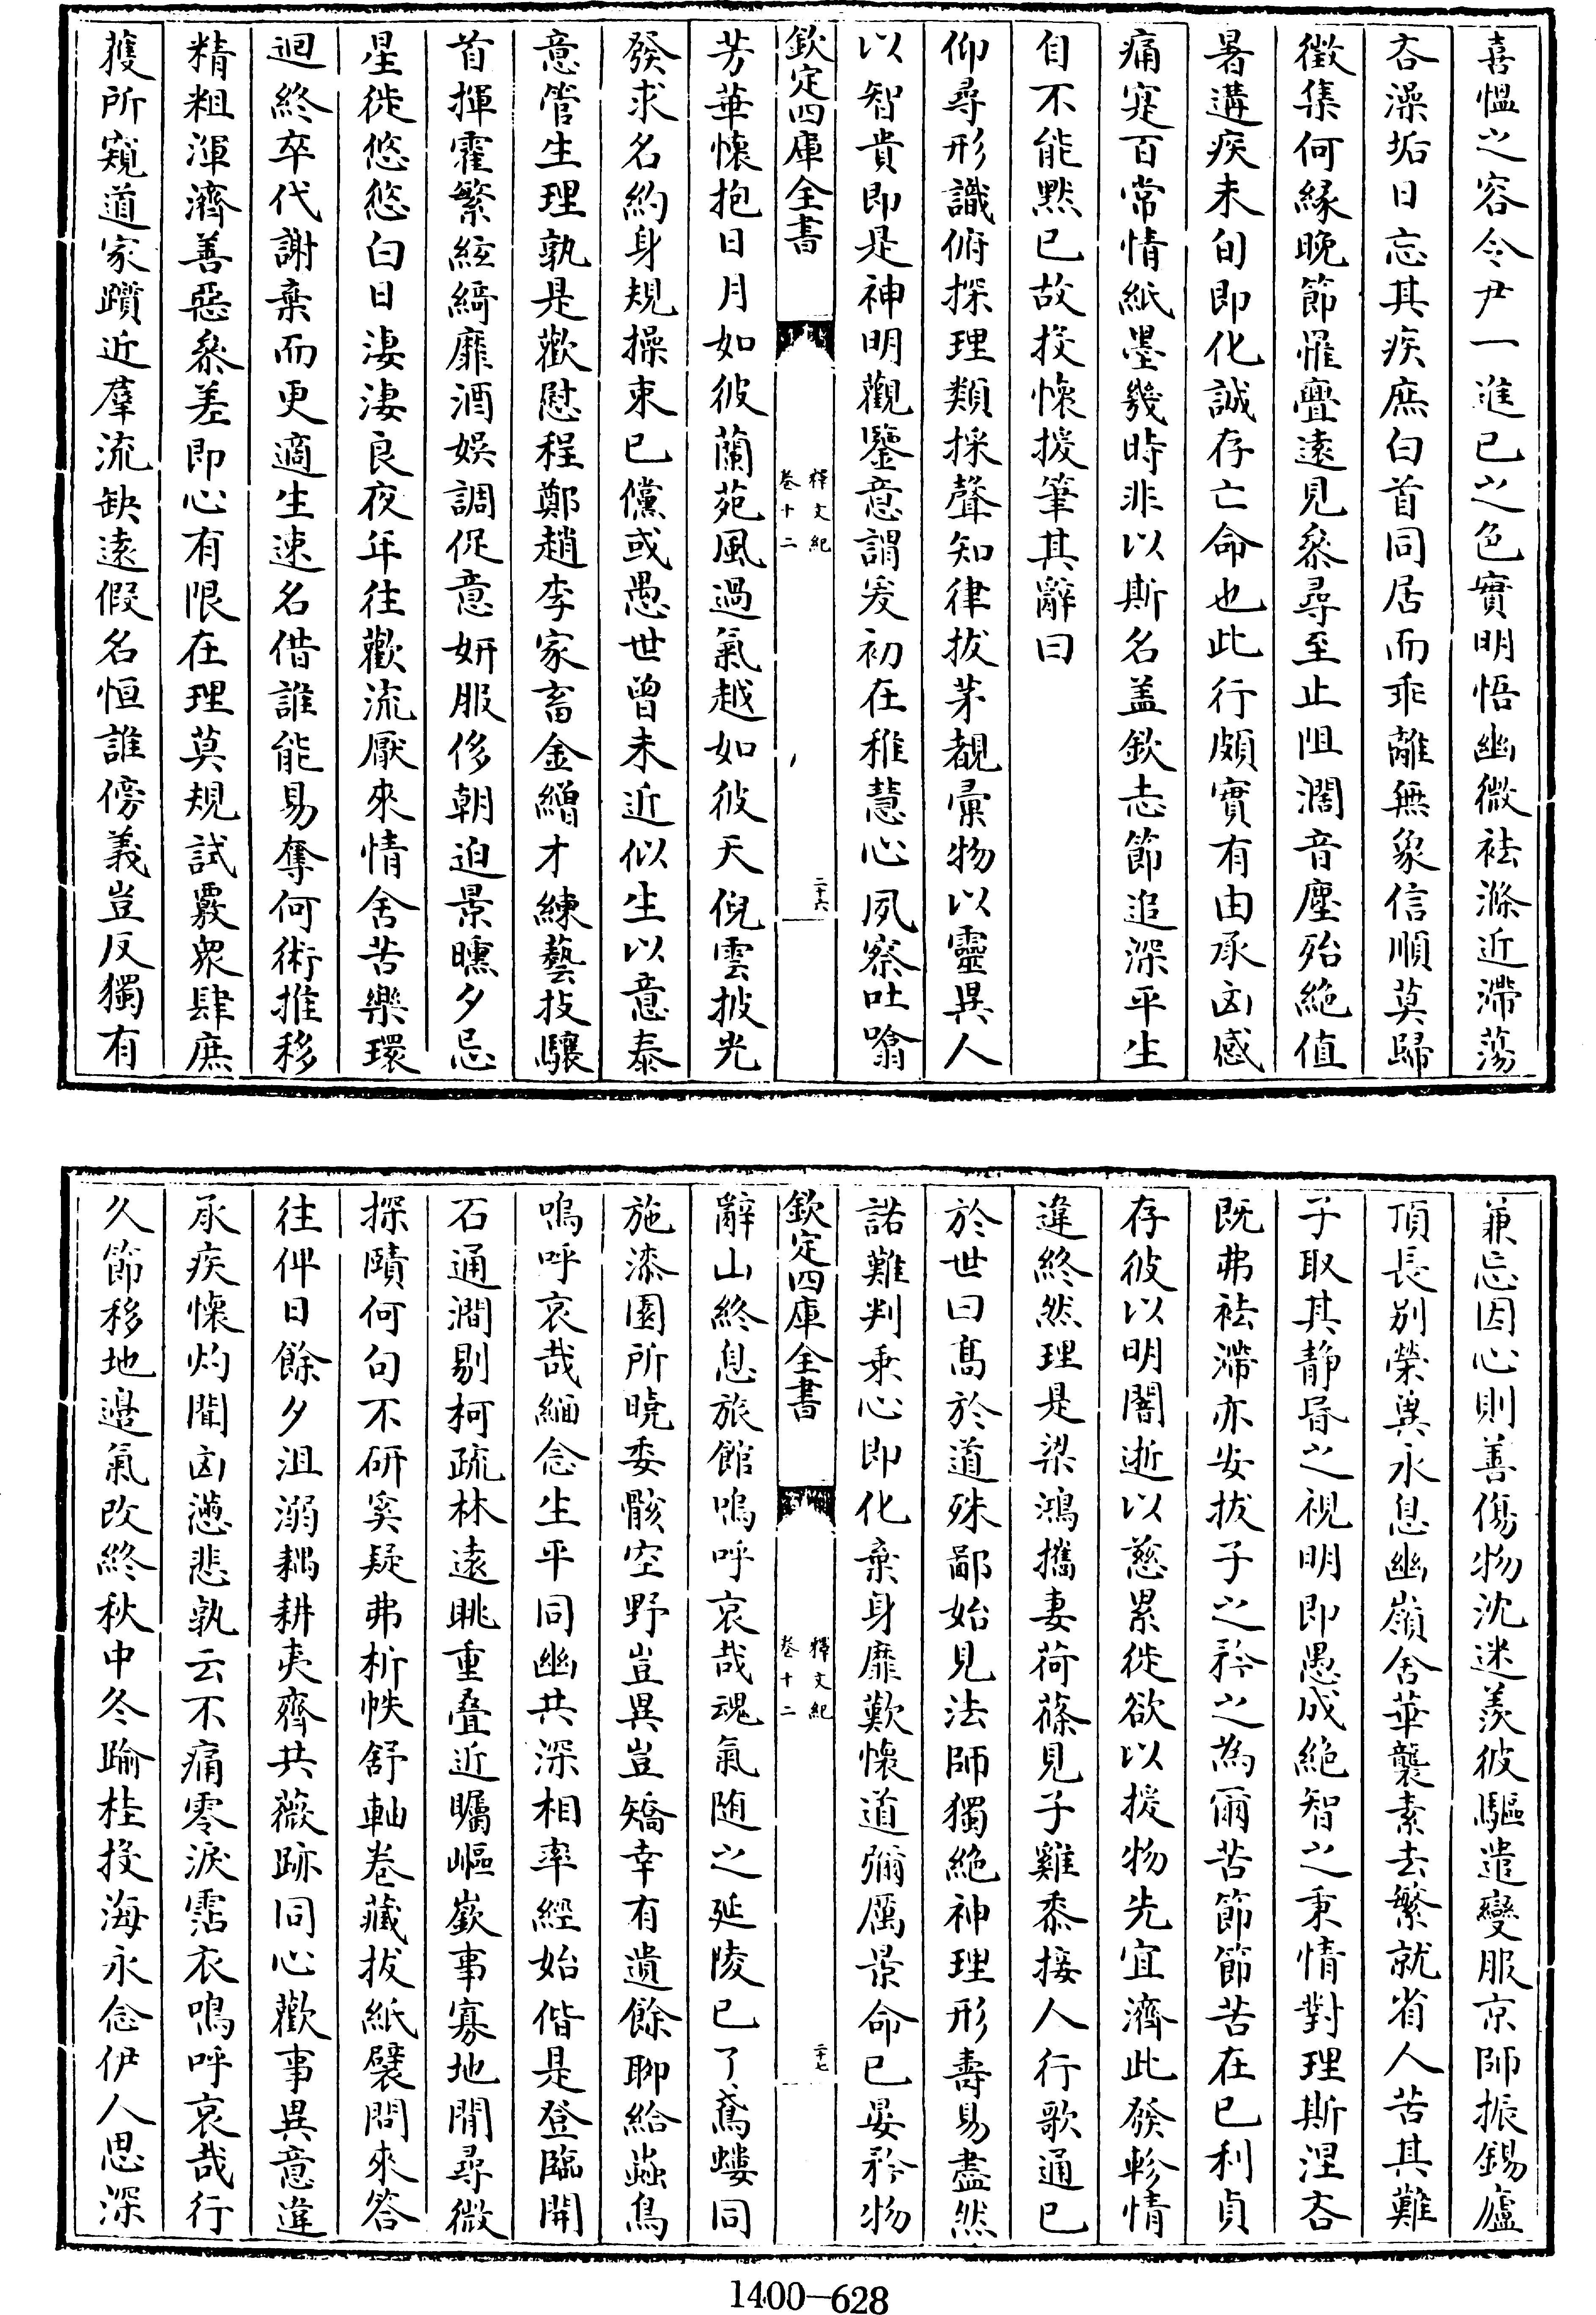 喜慍之容令尹一進已之色實明悟幽微袪滌近滯蕩
吝澡垢日忘其疾庶白首同居而乖離無象信順莫歸
徵集何緣晚節罹舋遠見叅尋至止阻濶音塵殆絶值
暑遘疾未旬即化誠存亡命也此行頗實有由承凶感
痛寔百常情紙墨幾時非以斯名盖欽志節追深平生
自不能黙已故投懷援筆其辭曰
仰尋形識俯探理類採聲知律拔茅覩彚物以靈異人
以智貴即是神明觀鑒意謂爰初在稚慧心夙察吐噏
欽定四庫全書
釋文紀
卷十二
二十六
芳華懷抱日月如彼蘭苑風過氣越如彼天倪雲披光
發求名約身規操束已儻或愚世曾未近似生以意泰
意管生理孰是歡慰程鄭趙李家畜金繒才練藝技驤
首揮霍繁絃綺靡酒娱調促意妍服侈朝迫景曛夕忌
星徙悠悠白日淒淒良夜年往歡流厭來情舍苦樂環
迴終卒代謝棄而更適生速名借誰能易奪何術推移
精粗渾濟善惡叅差即心有限在理莫規試覈衆肆庶
獲所窺道家躓近羣流缺遠假名恒誰傍義豈反獨有
兼忘因心則善傷物沈迷羡彼驅遣變服京師振錫廬
頂長别榮冀永息幽嶺舍華襲素去繁就省人苦其難
子取其静昏之視明即愚成絶智之秉情對理斯涅吝
既弗袪滯亦安拔子之矜之為爾苦節節苦在已利貞
存彼以明闇逝以慈累徙欲以援物先宜濟此發軫情
違終然理是梁鴻攜妻荷蓧見子雞黍接人行歌通已
於世曰髙於道殊鄙始見法師獨絶神理形壽易盡然
諾難判乗心即化棄身靡歎懷道彌厲景命已晏矜物
欽定四庫全書
釋文紀
卷十二
二十七
辭山終息旅館嗚呼哀哉魂氣随之延陵已了鳶螻同
施漆園所曉委骸空野豈異豈矯幸有遺餘聊給蟲鳥
嗚呼哀哉緬念生平同幽共深相率經始偕是登臨開
石通澗剔柯疏林遠眺重叠近矚嶇嶔事寡地閒尋微
探賾何句不研奚疑弗析帙舒軸卷藏拔紙襞問來答
往俾日餘夕沮溺耦耕夷齊共薇跡同心歡事異意違
承疾懷灼聞凶懣悲孰云不痛零淚霑衣嗚呼哀哉行
久節移地邊氣改終秋中冬踰桂投海永念伊人思深
1400-628